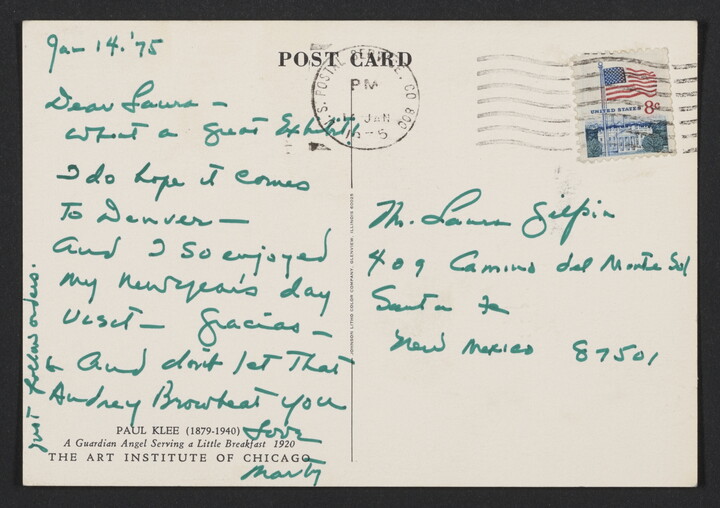 Jan 14. '75
POST CARD
Dear Laura —
What a great Exhibit!
I do hope it comes
To Denver —
And I so enjoyed
my New Year's day
visit — Gracias —
& And don't let That
Audrey Browbeat you
Love
Marty
just follow orders.
PAUL KLEE (1879-1940)
A Guardian Angel Serving a Little Breakfast 1920
THE ART INSTITUTE OF CHICAGO
JOHNSON LITHO COLOR COMPANY, GLENVIEW, ILLINOIS 60025
U.S. POSTAL SERVICE, CO 800
PM
14 JAN
UNITED STATES 8c
M. Laura Gilpin
409 Camino del Monte Sol
Santa Fe
New Mexico 87501